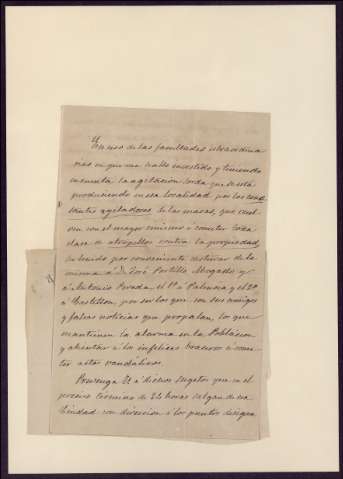 En uso de las facultades extraordina
rias en que me hallo investido y teniendo
en cuenta la agitacion sorda que se está
produciendo en esa localidad por los cons
tantes agitadores de las masas, que vuel
ven con el mayor cinismo a cometer toda
clase de atropellos contra la propiedad,
he tenido por conveniente desterrar de la
misma a D. José Portillo Mogado y
a Antonio Parada, el 1º a Palencia y el 2º
a Castellon, por ser los que con sus amigos
y falsas noticias que propalan, los que
mantienen la alarma en la Poblacion
y alientan a los infelices braceros a come
ter actos vandálicos.
Prevenga U. a dichos sugetos que en el
preciso termino de 24 horas salgan de esa
Ciudad con direccion a los puntos designa